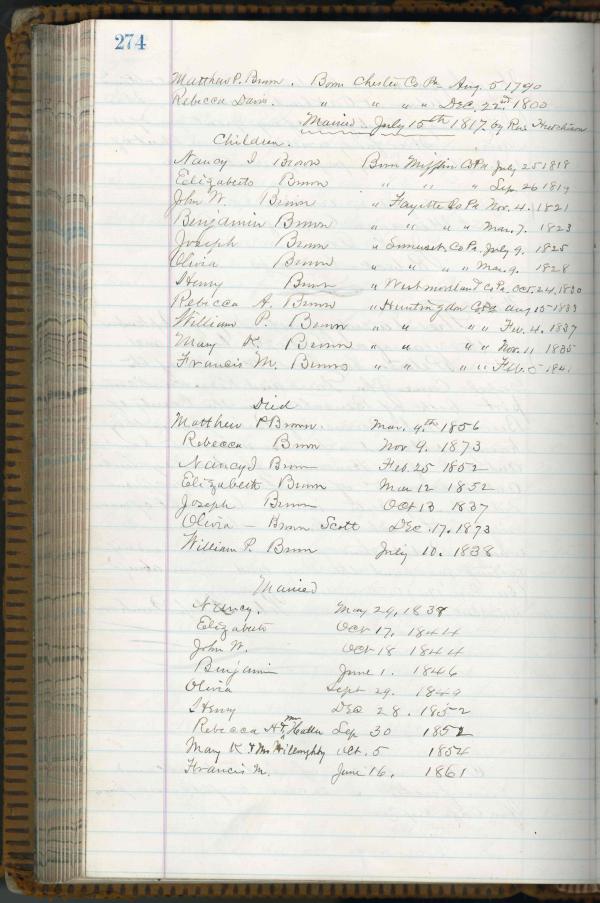 274
Matthew P. Brown. Born Chester Co Pa Aug. 5 1790
Rebecca Davis. " " " " Dec. 22nd 1800
Married July 15th 1817 by Rev. Hutchison
Children.
Nancy J Brown Born Mifflin Co Pa July 25 1818
Elizabeth Brown " " " Sep 26 1819
John W. Brown " Fayette Co Pa Nov. 4. 1821
Benjamin Brown " " " " Mar. 7. 1823
Joseph Brown " Somerset Co Pa. July 9. 1825
Olivia Brown " " " " Mar. 9. 1828
Henry Brown " Westmoreland Co Pa. Oct. 24. 1830
Rebecca A. Brown " Huntingdon Co Pa Aug 15 1833
William P. Brown " " " " Feb. 4. 1837
Mary K. Brown " " " " Nov. 11 1835
Francis M. Brown " " " " Feb. 5 1841
Died
Matthew P Brown. Mar. 9th 1856
Rebecca Brown Nov 9. 1873
Nancy J Brown Feb. 25 1852
Elizabeth Brown Mar 12 1852
Joseph Brown Oct 13 1837
Olivia - Brown Scott Dec. 17. 1873
William P. Brown July 10. 1838
Married
Nancy. May 29, 1838
Elizabeth Oct 17. 1844
John W. Oct 18 1844
Benjamin June 1. 1846
Olivia Sept 29. 1849
Henry Dec 28. 1852
Rebecca A Sep 30 1852
Mary K Oct. 5 1854
Francis M. June 16. 1861